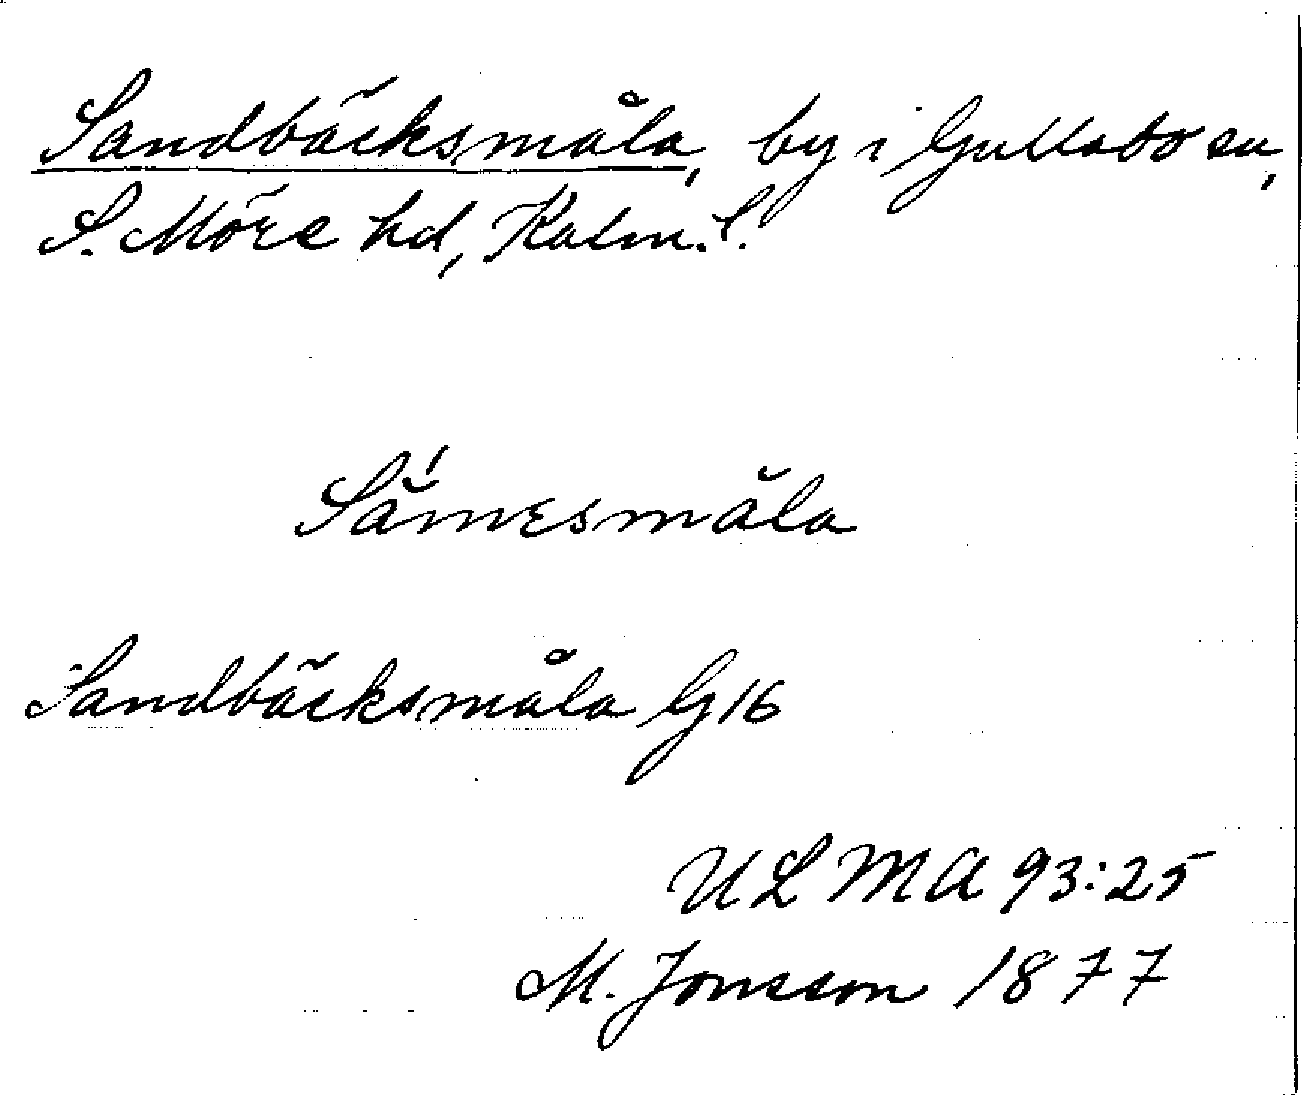 Sandbäcksmåla, by i Gullabo sn,
S. Möre hd, Kalm. l.
Sä́mesmåla
Sandbäcksmåla G 16
ULMA 93:25
M. Jonsson 1877